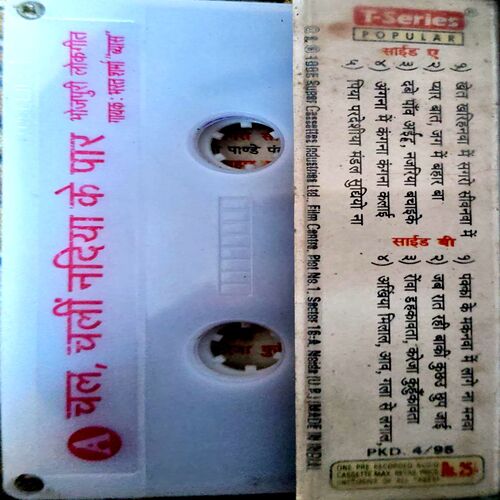 A चल, चलीं नदिया के पार
भोजपुरी लोकगीत
गायक: भरत शर्मा "व्यास"
पाण्डे
T-Series
POPULAR
साईड ए
१) खेत खरिहनवा में सगरो सीवनवा में
२) प्यार बाल, जग में बहार बा
३) दबे पाँव अईह, नजरिया बचाइके
४) अंगना में कंगना कंगना कलाई
५) पिया परदेशीया मंडल सुधियो ना
साईड बी
१) पंक्का के मकनवा में लागे ना मनवा
२) जब रात रही बाकी कुछउ छुप जाई
३) रोंवा डहकावता, करेजा कुहुँकावता
४) अखिया मिलाल, आव, गला से लगाल,
℗ & © 1995 Super Cassettes Industries Ltd., Film Centre, Plot No. 1, Sector 16-A, Noida (U.P.) MADE IN INDIA
PKD. 4/95
ONE PRE RECORDED AUDIO
CASSETTE MAX. RETAIL PRICE
Rs. 25/-